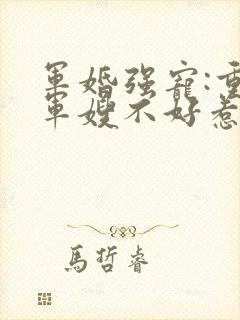 軍婚強寵:重
軍嫂不好惹
馬哲睿